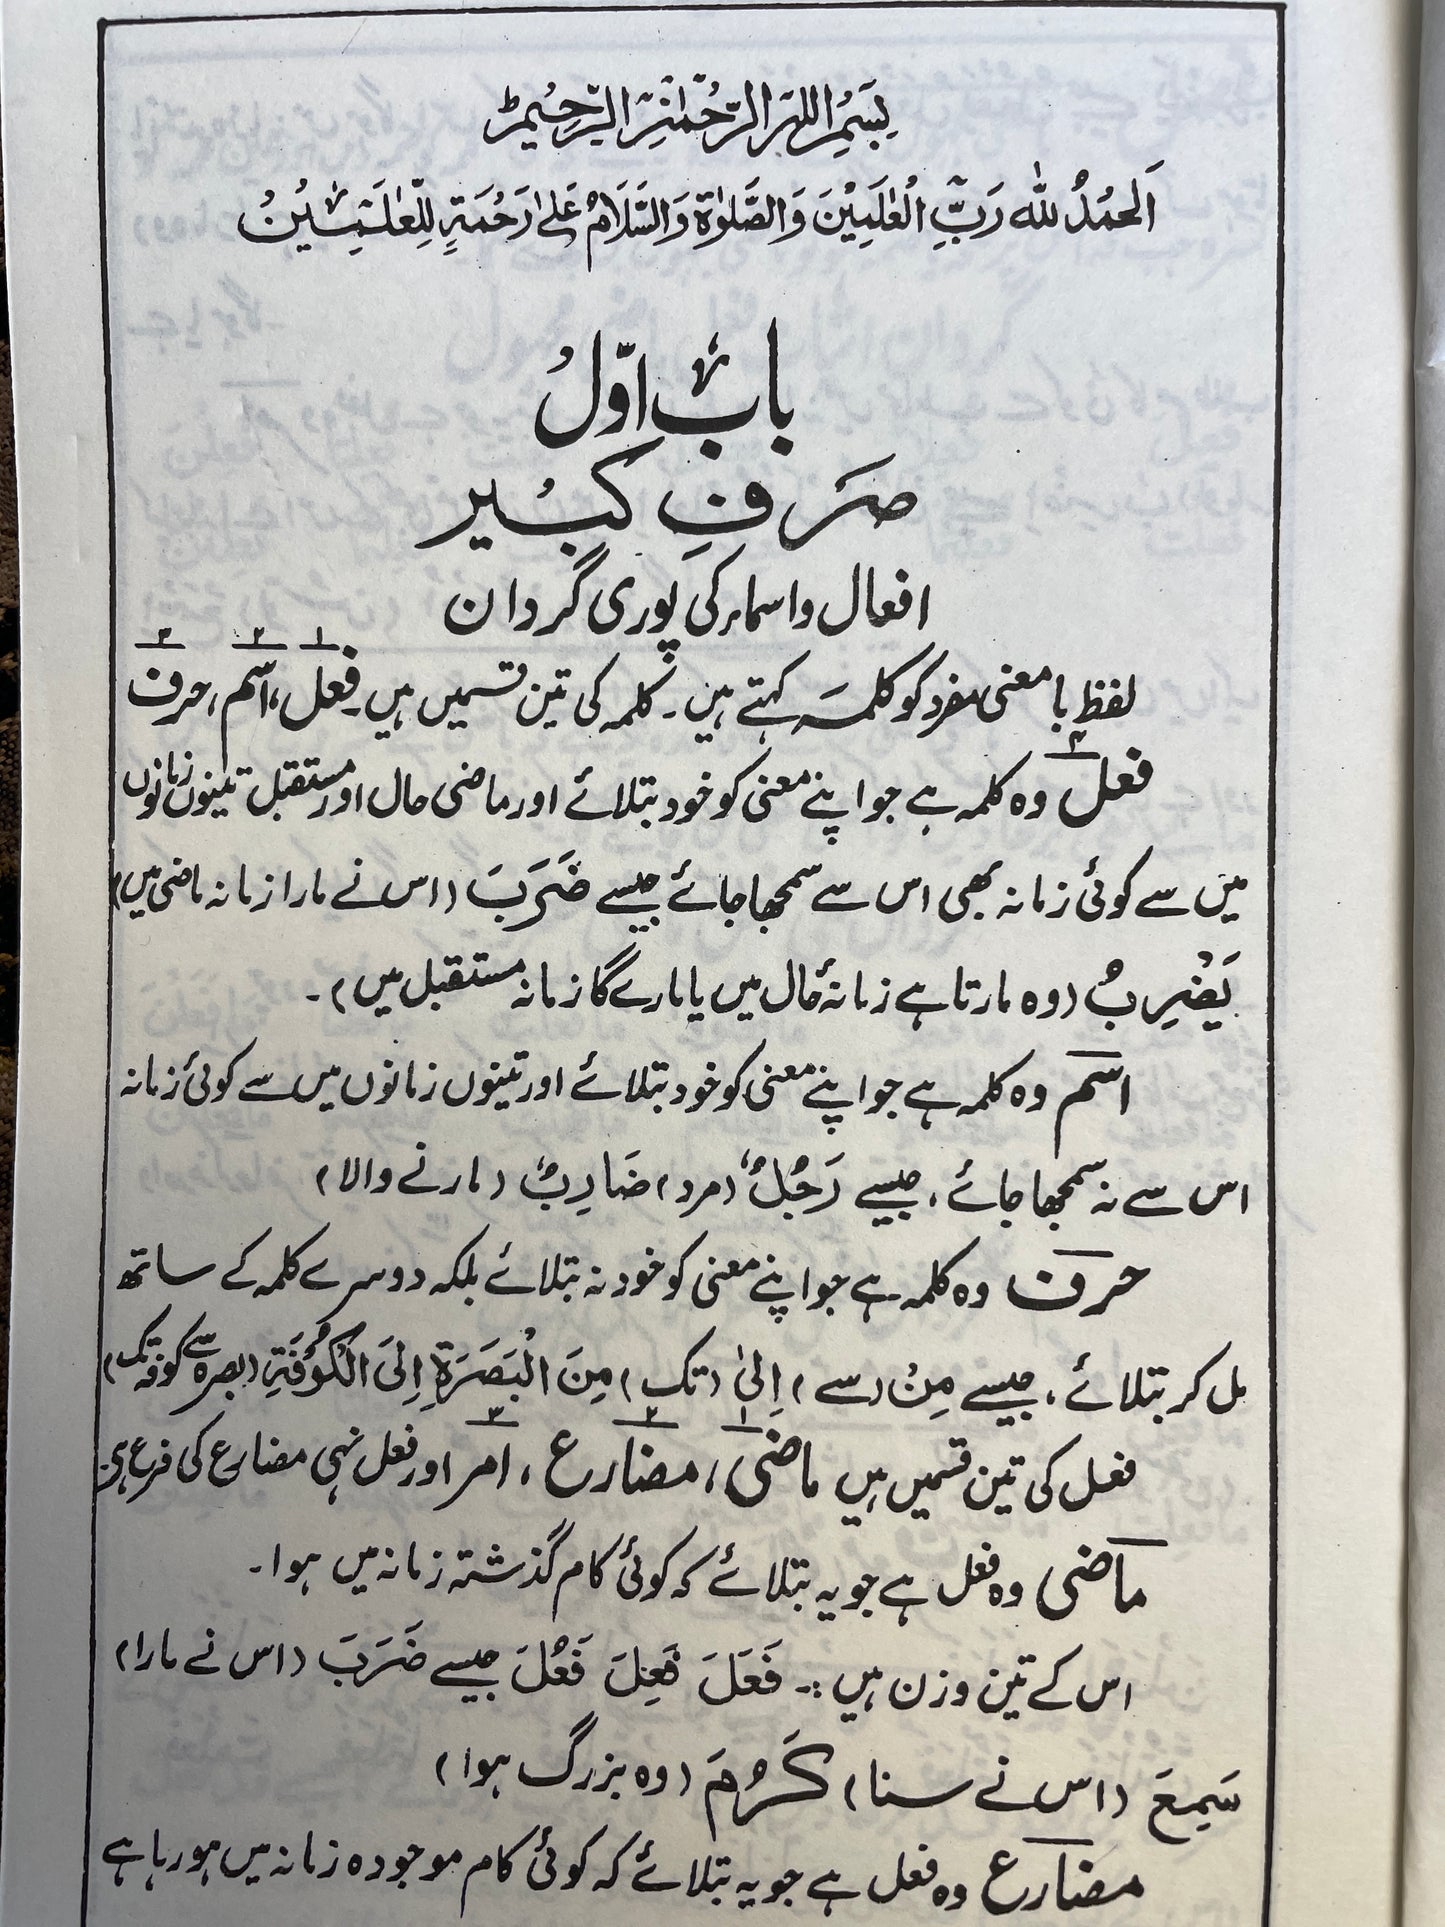 بِسْمِ اللّٰهِ الرَّحْمٰنِ الرَّحِيْمِ ط
اَلْحَمْدُ لِلّٰه رَبِّ الْعٰلَمِيْنَ وَالصَّلٰوةُ وَالسَّلَامُ عَلٰى رَحْمَةٍ لِّلْعٰلَمِيْنُ
بابْ اوّلُ
صَرَفِ كبُير
افعال و اسماء کی پوری گردان
لفظِ با معنی مفرد کو کلمہ کہتے ہیں۔ کلمہ کی تین قسمیں ہیں۔ فعل۱، اسم۲، حرف۳
فعل وہ کلمہ ہے جو اپنے معنی کو خود بتلائے اور ماضی حال اور مستقبل تینوں زمانوں
میں سے کوئی زمانہ بھی اس سے سمجھا جائے جیسے ضَرَبَ (اس نے مارا زمانہ ماضی میں)
يَضْرِبُ (وہ مارتا ہے زمانۂ حال میں یا مارے گا زمانہ مستقبل میں)۔
اسم وہ کلمہ ہے جو اپنے معنی کو خود بتلائے اور تینوں زمانوں میں سے کوئی زمانہ
اس سے نہ سمجھا جائے، جیسے رَجُلٌ (مرد) ضَارِبٌ (مارنے والا)
حرف وہ کلمہ ہے جو اپنے معنی کو خود نہ بتلائے بلکہ دوسرے کلمہ کے ساتھ
مل کر بتلائے، جیسے مِنْ (سے) اِلیٰ (تک) مِنَ الْبَصَرَةِ اِلَی الْكُوْفَةِ (بصرہ سے کوفہ تک)
فعل کی تین قسمیں ہیں ماضی۱، مضارع۲، امر۳ اور فعل نہی مضارع کی فرع ہیں
ماضی وہ فعل ہے جو یہ بتلائے کہ کوئی کام گذشتہ زمانہ میں ہوا۔
اس کے تین وزن ہیں :۔ فَعَلَ فَعِلَ فَعُلَ جیسے ضَرَبَ (اس نے مارا)
سَمِعَ (اس نے سنا) كَرُمَ (وہ بزرگ ہوا)
مضارع وہ فعل ہے جو یہ بتلائے کہ کوئی کام موجودہ زمانہ میں ہو رہا ہے